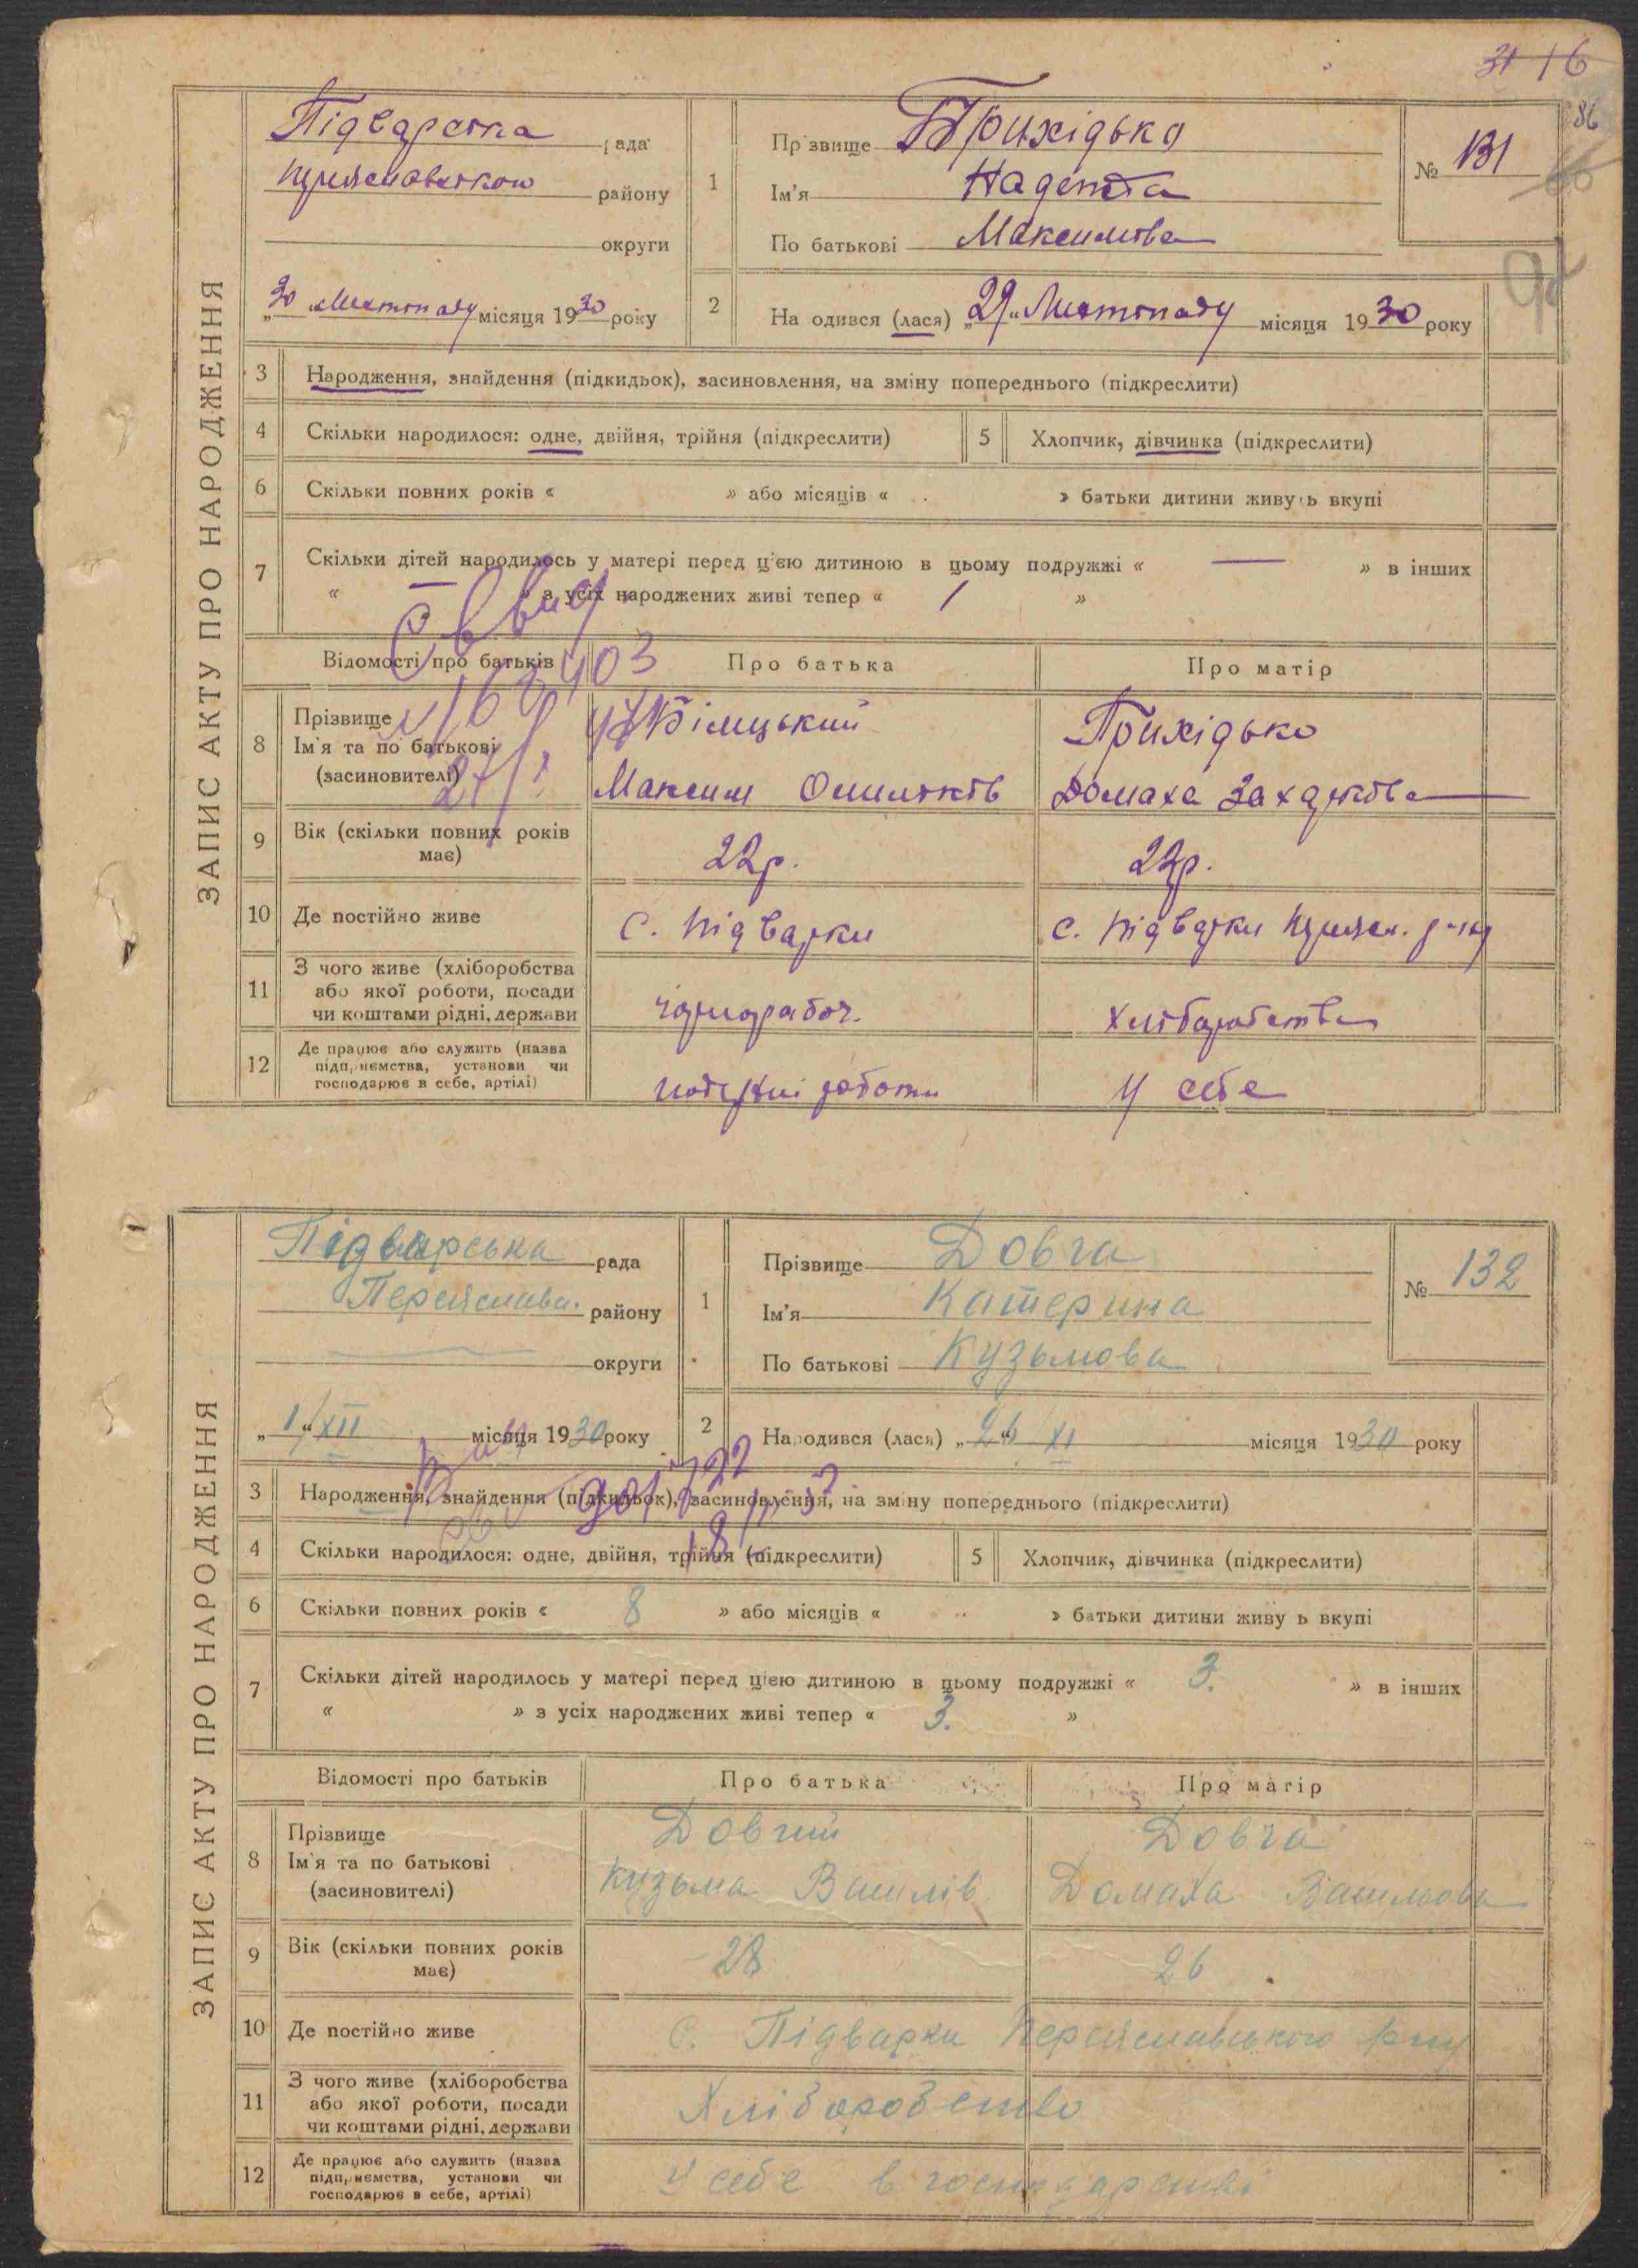 31 16
86
ЗАПИС АКТУ ПРО НАРОДЖЕННЯ
Підварська рада
району
округи
„30" Листопаду місяця 1930 року
1
Прізвище Прихідько
Ім'я Надежда
По батькові Максимова
№ 131
2
На одився (лася) „29" Листопаду місяця 1930 року
3 Народження, знайдення (підкидьок), засиновлення, на зміну попереднього (підкреслити)
4 Скільки народилося: одне, двійня, трійня (підкреслити)
5 Хлопчик, дівчинка (підкреслити)
6 Скільки повних років « » або місяців « » батьки дитини живуть вкупі
7 Скільки дітей народилось у матері перед цією дитиною в цьому подружжі « — » в інших
« — » з усіх народжених живі тепер « 1 »
Відомості про батьків Про батька Про матір
8 Прізвище
Ім'я та по батькові
(засиновителі)
Білицький
Максим
Прихідько
Домаха
9 Вік (скільки повних років має)
22р.
22р.
10 Де постійно живе
с. Підварки
с. Підварки
11 З чого живе (хліборобства
або якої роботи, посади
чи коштами рідні, держави
чорнорабоч.
Хліборобство
12 Де працює або служить (назва
підприємства, установи чи
господарює в себе, артілі)
роботи
У себе
ЗАПИС АКТУ ПРО НАРОДЖЕННЯ
Підварська рада
Переяслав. району
округи
„1" XII місяця 1930 року
1
Прізвище Довга
Ім'я Катерина
По батькові Кузьмова
№ 132
2
Народився (лася) „26" XI місяця 1930 року
3 Народження, знайдення (підкидьок), засиновлення, на зміну попереднього (підкреслити)
4 Скільки народилося: одне, двійня, трійня (підкреслити)
5 Хлопчик, дівчинка (підкреслити)
6 Скільки повних років « 8 » або місяців « » батьки дитини живу ь вкупі
7 Скільки дітей народилось у матері перед цією дитиною в цьому подружжі « 3. » в інших
« » з усіх народжених живі тепер « 3. »
Відомості про батьків Про батька Про матір
8 Прізвище
Ім'я та по батькові
(засиновителі)
Довгий
Кузьма Василів
Довга
Домаха Василова
9 Вік (скільки повних років має)
28
26
10 Де постійно живе
с. Підварки Переяславського р-ну
11 З чого живе (хліборобства
або якої роботи, посади
чи коштами рідні, держави
Хліборобство
12 Де працює або служить (назва
підприємства, установи чи
господарює в себе, артілі)
У себе в господарстві